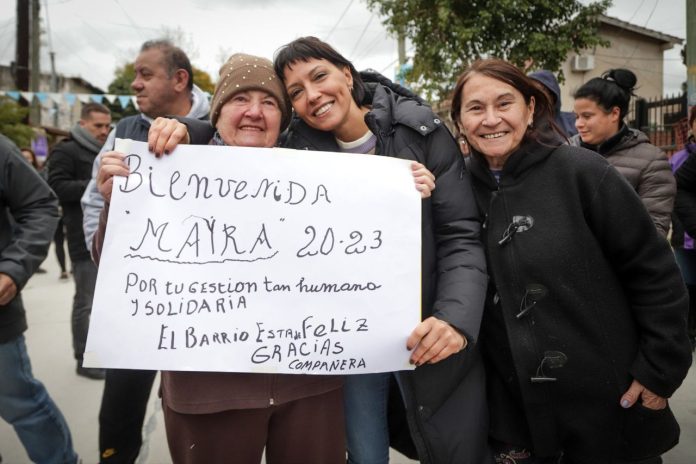 BIENVENIDA
"MAYRA" 20-23
POR tu GESTION tan humana
Y SOLIDARIA
EL BARRIO ESTA FELIZ
GRACIAS
COMPAÑERA